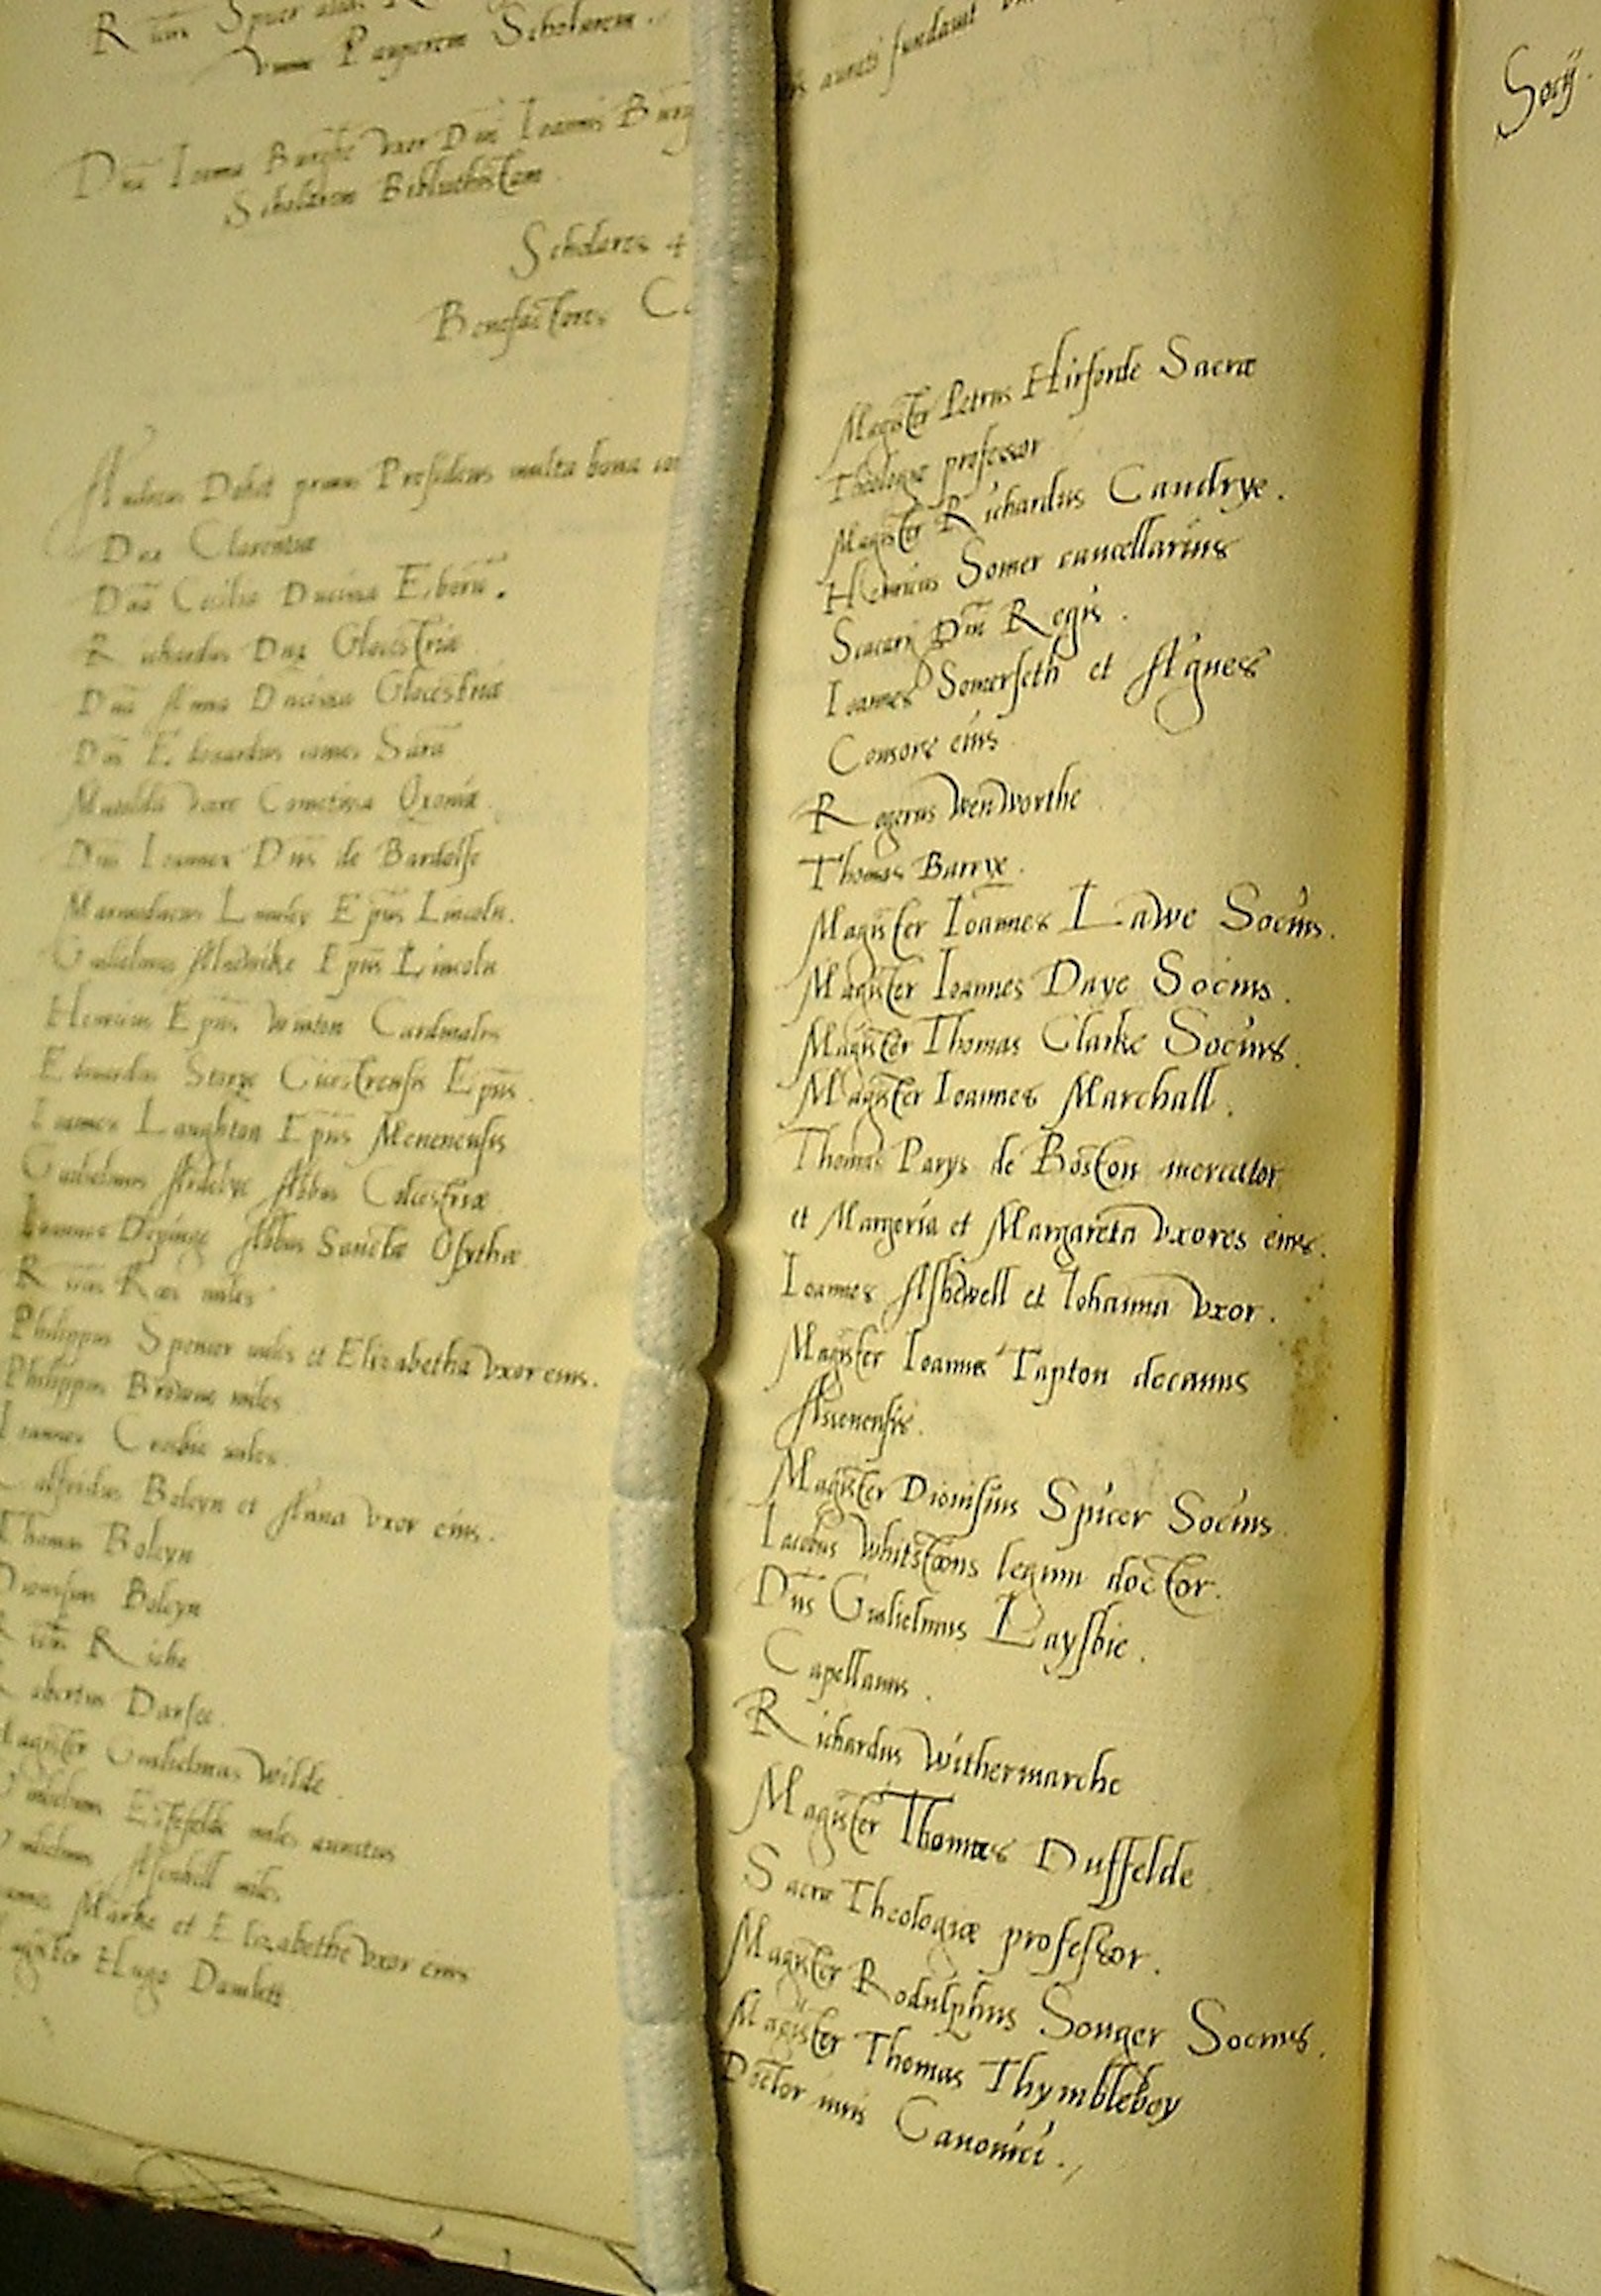 Rič̃us Spicer alias
vnum Pauperem Scholarem.
Dña Ioanna Burghe vxor Dñi Ioannis Burg
Scholarem Bibliothistam.
Scholares 4
Benefactores
Andreas Doket primus Presidens multa bona
Dux Clarentiæ
Dña Cecilia Ducissa Eborũ.
Richardus Dux Glocestriæ
Dña Anna Ducissa Glocestriæ
Dñs Edouardus comes
Matilda Vare Cometissa Oxoniæ.
Dñs Ioannes Dñs de Bardolfe
Marmaducus Lumley Ep̃us Lincoln.
Gulielmus Alnwike Ep̃us Lincoln
Henricus Ep̃us Winton Cardinalis
Edouardus Storye Cicestrensis Ep̃us.
Ioannes Laughton Ep̃us Menenensis
Gulielmus Ardelye Abbas Colcestriæ
Ioannes Depinge Abbas Sanctæ Osythæ
miles
Philippus Spencer miles et Elizabetha vxor eius.
Philippus Browne miles
Ioannes Crosbie miles.
Galfridus Boleyn et Anna vxor eius.
Thomas Boleyn
Dionisius Boleyn
Riche
Darsee.
Magister Gulielmus Wilde.
miles auratus
miles
Marke et Elizabethe vxor eius
Magister Hugo Damlett
aurati fundauit
Magister Petrus Hirforde Sacræ
Theologiæ professor
Magister Richardus Caudrye.
Henricus Somer cancellarius
Scacarij Dñi Regis.
Ioannes Somerseth et Agnes
Consors eius
Rogerus Wenworthe
Thomas Barrye.
Magister Ioannes Lawe Socius.
Magister Ioannes Daye Socius.
Magister Thomas Clarke Socius.
Magister Ioannes Marchall.
Thomas Parys de Boston mercator
et Margeria et Margareta vxores eius.
Ioannes Ashewell et Iohanna vxor.
Magister Ioannes Tapton decanus
Assenensis.
Magister Dionisius Spicer Socius
Iacobus Whitstons legum doctor.
Dñs Gulielmus Laysbie.
Capellanus.
Richardus Withermarche
Magister Thomas Duffelde
Sacræ Theologiæ professor.
Magister Rodulphus Songer Socius.
Magister Thomas Thymblebey
Doctor iuris Canonici.
Socij.